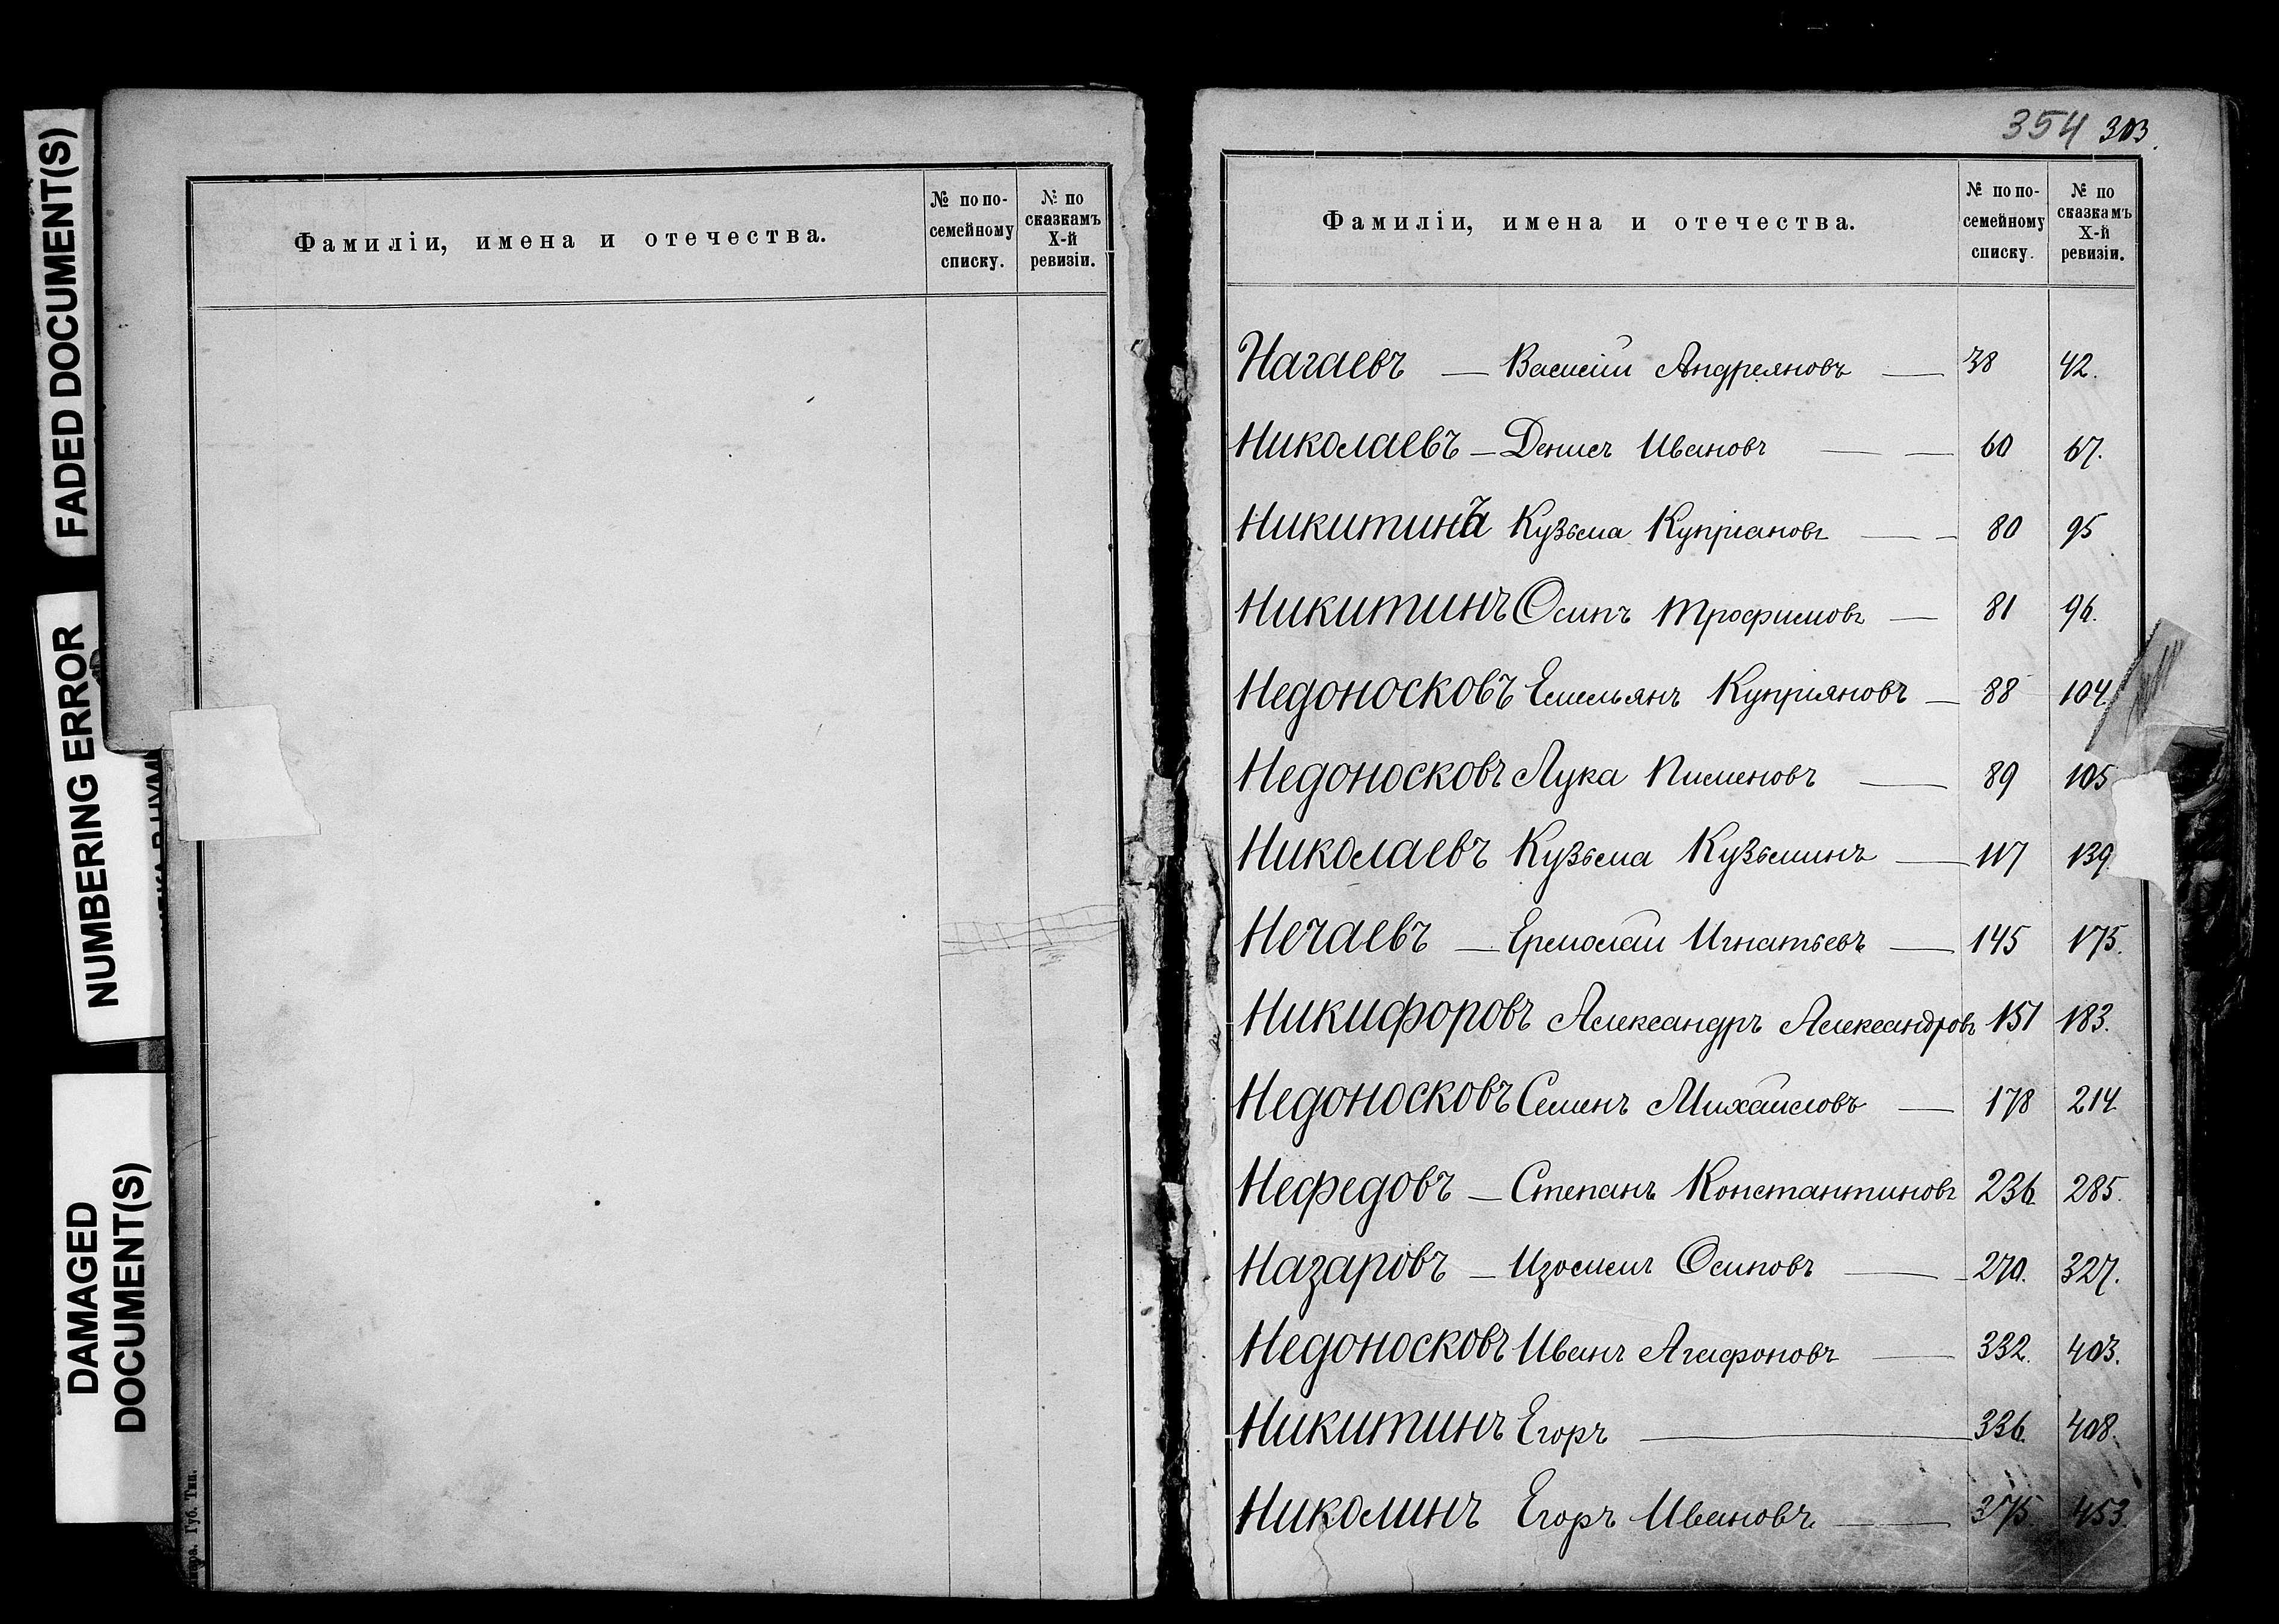 FADED DOCUMENT(S)
NUMBERING ERROR
DAMAGED
DOCUMENT(S)
Фамиліи, имена и отечества.
№ по по-
семейному
списку.
№ по
сказкамъ
X-й
ревизіи.
Губ. Тип.
354 303.
Фамиліи, имена и отечества.
№ по по-
семейному
списку.
№ по
сказкамъ
X-й
ревизіи.
Нагаевъ — Василій Андреяновъ — 38 42.
Николаевъ — Денисъ Ивановъ — — 60 67.
Никитинъ Кузьма Купріановъ — — 80 95
Никитинъ Осипъ Трофимовъ — 81 96.
Недоносковъ Емельянъ Купріяновъ — 88 104
Недоносковъ Лука Пименовъ — 89 105
Николаевъ Кузьма Кузьминъ — 117 139
Нечаевъ — Ермолай Игнатьевъ — 145 175.
Никифоровъ Александръ Александровъ 151 183.
Недоносковъ Семенъ Михайловъ — 178 214
Нефедовъ — Степанъ Константиновъ 236. 285.
Назаровъ — Изосимъ Осиповъ — 270. 327.
Недоносковъ Иванъ Агафоновъ — 332. 403.
Никитинъ Егоръ — 336. 408.
Николинъ Егоръ Ивановъ — 375. 453.